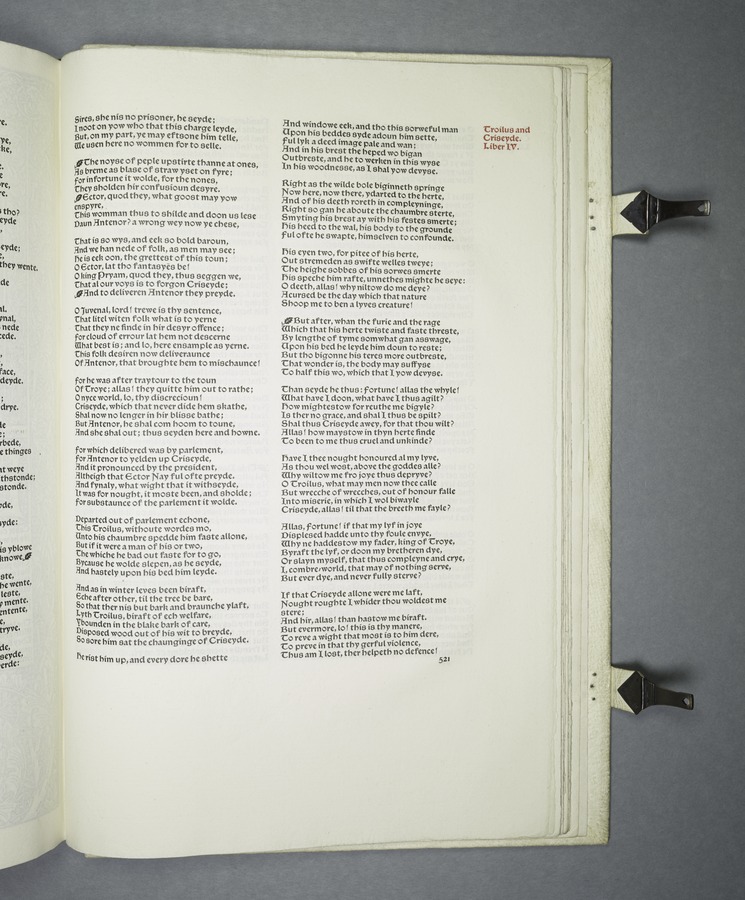 re.
ye,
ke,
re,
re,
tho?
cyde
eyde;
they wente.
de
al.
ynal,
nede
cede.
face,
deyde.
drye.
rbede,
e thinges
at weye
thstonde;
stonde.
ede,
yde:
is yblowe
knowe,
ste,
he wente,
leste,
y mente.
entente,
tryve.
de,
seyde,
erde:
Sires, she nis no prisoner, he seyde;
I noot on yow who that this charge leyde,
But, on my part, ye may eftsone him telle,
We usen here no wommen for to selle.
The noyse of peple upstirte thanne at ones,
As breme as blase of straw yset on fyre;
For infortune it wolde, for the nones,
They sholden hir confusioun desyre.
Ector, quod they, what goost may yow
enspyre,
This womman thus to shilde and doon us lese
Daun Antenor? a wrong wey now ye chese,
That is so wys, and eek so bold baroun,
And we han nede of folk, as men may see;
He is eek oon, the grettest of this toun;
O Ector, lat tho fantasyës be!
O king Pryam, quod they, thus seggen we,
That al our voys is to forgon Criseyde;
And to deliveren Antenor they preyde.
O Juvenal, lord! trewe is thy sentence,
That litel witen folk what is to yerne
That they ne finde in hir desyr offence;
For cloud of errour lat hem not descerne
What best is; and lo, here ensample as yerne.
This folk desiren now deliveraunce
Of Antenor, that broughte hem to mischaunce!
For he was after traytour to the toun
Of Troye; allas! they quitte him out to rathe;
O nyce world, lo, thy discrecioun!
Criseyde, which that never dide hem skathe,
Shal now no lenger in hir blisse bathe;
But Antenor, he shal com hoom to toune,
And she shal out; thus seyden here and howne.
For which delibered was by parlement,
For Antenor to yelden up Criseyde,
And it pronounced by the president,
Altheigh that Ector Nay ful ofte preyde.
And fynaly, what wight that it withseyde,
It was for nought, it moste been, and sholde;
For substaunce of the parlement it wolde.
Departed out of parlement echone,
This Troilus, withoute wordes mo,
Unto his chaumbre spedde him faste allone,
But if it were a man of his or two,
The whiche he bad out faste for to go,
Bycause he wolde slepen, as he seyde,
And hastely upon his bed him leyde.
And as in winter leves been biraft,
Eche after other, til the tree be bare,
So that ther nis but bark and braunche ylaft,
Lyth Troilus, biraft of ech welfare,
Ybounden in the blake bark of care,
Disposed wood out of his wit to breyde,
So sore him sat the chaunginge of Criseyde.
He rist him up, and every dore he shette
And windowe eek, and tho this sorweful man
Upon his beddes syde adoun him sette,
Ful lyk a deed image pale and wan;
And in his brest the heped wo bigan
Outbreste, and he to werken in this wyse
In his woodnesse, as I shal yow devyse.
Right as the wilde bole biginneth springe
Now here, now there, ydarted to the herte,
And of his deeth roreth in compleyninge,
Right so gan he aboute the chaumbre sterte,
Smyting his brest ay with his festes smerte;
His heed to the wal, his body to the grounde
Ful ofte he swapte, himselven to confounde.
His eyen two, for pitee of his herte,
Out stremeden as swifte welles tweye;
The heighe sobbes of his sorwes smerte
His speche him rafte, unnethes mighte he seye:
O deeth, allas! why niltow do me deye?
Acursed be the day which that nature
Shoop me to ben a lyves creature!
But after, whan the furie and the rage
Which that his herte twiste and faste threste,
By lengthe of tyme somwhat gan asswage,
Upon his bed he leyde him doun to reste;
But tho bigonne his teres more outbreste,
That wonder is, the body may suffyse
To half this wo, which that I yow devyse.
Than seyde he thus: Fortune! allas the whyle!
What have I doon, what have I thus agilt?
How mightestow for reuthe me bigyle?
Is ther no grace, and shal I thus be spilt?
Shal thus Criseyde awey, for that thou wilt?
Allas! how maystow in thyn herte finde
To been to me thus cruel and unkinde?
Have I thee nought honoured al my lyve,
As thou wel wost, above the goddes alle?
Why wiltow me fro joye thus depryve?
O Troilus, what may men now thee calle
But wrecche of wrecches, out of honour falle
Into miserie, in which I wol biwayle
Criseyde, allas! til that the breeth me fayle?
Allas, Fortune! if that my lyf in joye
Displesed hadde unto thy foule envye,
Why ne haddestow my fader, king of Troye,
Byraft the lyf, or doon my bretheren dye,
Or slayn myself, that thus compleyne and crye,
I, combre-world, that may of nothing serve,
But ever dye, and never fully sterve?
If that Criseyde allone were me laft,
Nought roughte I whider thou woldest me
stere;
And hir, allas! than hastow me biraft.
But evermore, lo! this is thy manere,
To reve a wight that most is to him dere,
To preve in that thy gerful violence,
Thus am I lost, ther helpeth no defence!
521
Troilus and
Criseyde.
Liber IV.